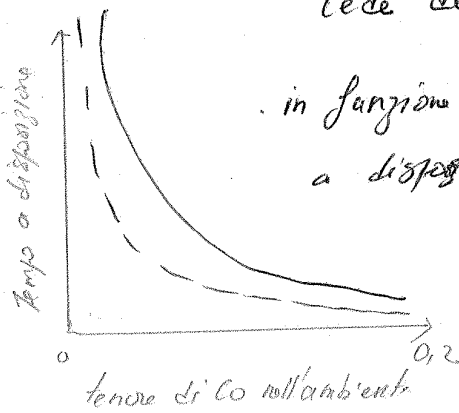 cede
in funzione
a dispos
Tempo a disposizione
0
0,2
tenore di Co nell'ambiente